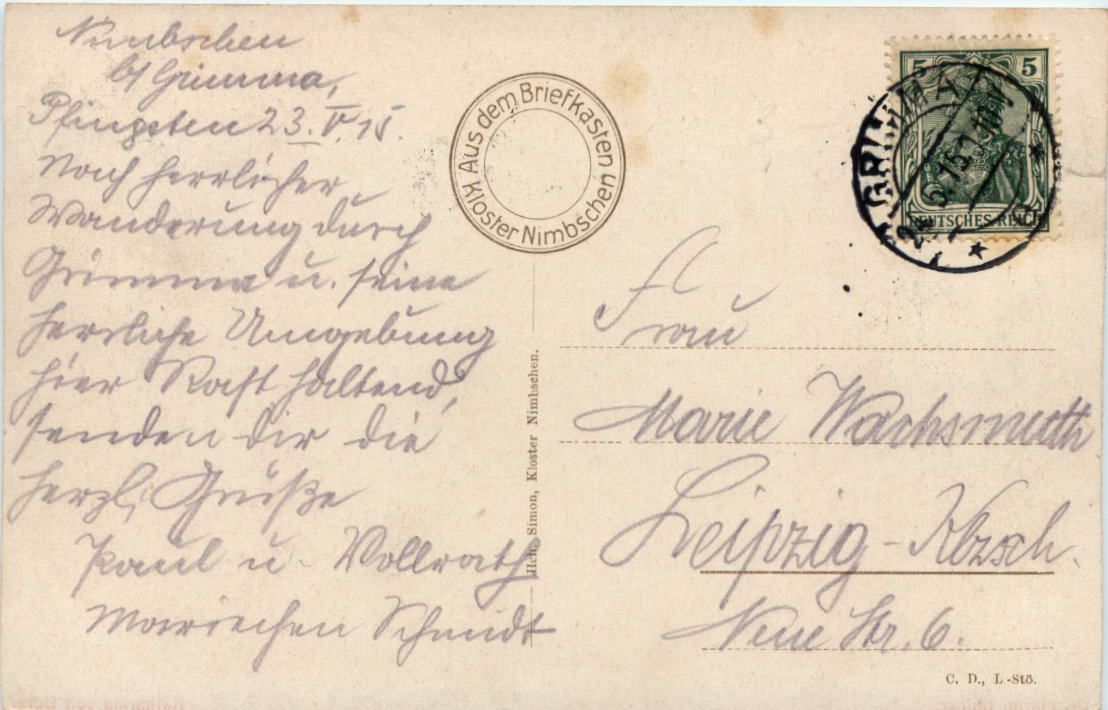 Nimbschen
b/ Grimma,
Pfingsten 23. V. 15.
Nach herrlicher
Wanderung durch
Grimma u. seine
herrliche Umgebung
hier Rast haltend,
senden dir die
herzl. Grüße
Paul u. Vollrath
Mariechen Schmidt
Aus dem Briefkasten
Kloster Nimbschen
Hch. Simon, Kloster Nimbschen.
5 5
DEUTSCHES REICH
GRIMMA
Frau
Marie Wachsmuth
Leipzig-Klzsch.
Neue Str. 6.
C. D., L.-Stö.